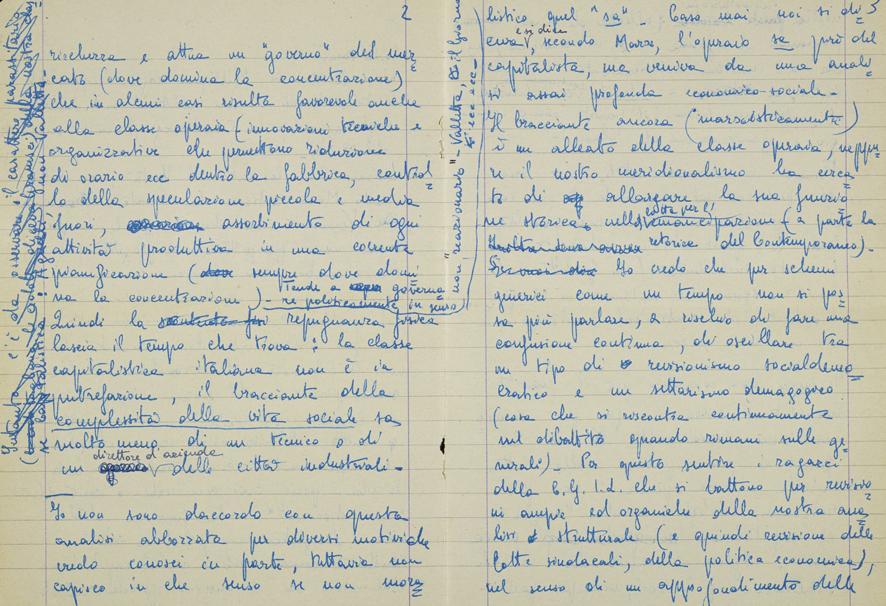 2
ricchezza e attua un "governo" del mer=
cato (dove domina la concentrazione)
che in alcuni casi risulta favorevole anche
alla classe operaia (innovazioni tecniche e
organizzative che permettono riduzione
di orario ecc dentro la fabbrica, control=
lo della speculazione piccola e media
fuori, assorbimento di ogni
attività produttiva in una corrente
pianificazione (dove sempre dove domi
na la concentrazione) - Tiende a governa=
re politicamente in senso
non "reazionario" - Valletta, Il Giorno
ecc ecc -
Quindi la repugnanza fisica
lascia il tempo che trova: la classe
capitalistica italiana non è in
putrefazione, il bracciante della
complessità della vita sociale sa
molto meno di un tecnico o di
un direttore d'azienda delle città industriali -
Io non sono daccordo con questa
analisi abbozzata per diversi motivi che
credo conosci in parte, tuttavia non
capisco in che senso se non mora=
listico quel "sa". Caso mai noi si di=
ceva e si dice, secondo Marx, l'operaio sa più del
capitalista, ma veniva da una anali=
si assai profonda economico-sociale -
Il bracciante ancora (marxisticamente)
è un alleato della classe operaia, neppu=
re il nostro meridionalismo ha cerca=
to di allargare la sua funzio=
ne storica, nella lotta per l'emancipazione (a parte la
retorica del Contemporaneo) -
Io credo che per schemi
generici come un tempo non si pos=
sa più parlare, a rischio di fare una
confusione continua, di oscillare tra
un tipo di revisionismo socialdemo=
cratico e un settarismo demagogico
(cosa che si riscontra continuamente
nel dibattito quando rimani sulle ge=
nerali) - Per questo sentire i ragazzi
della C.G.I.L. che si battono per revisio=
ni ampie ed organiche della nostra ana=
lisi strutturale (e quindi revisione delle
lotte sindacali, della politica economica),
nel senso di un approfondimento delle